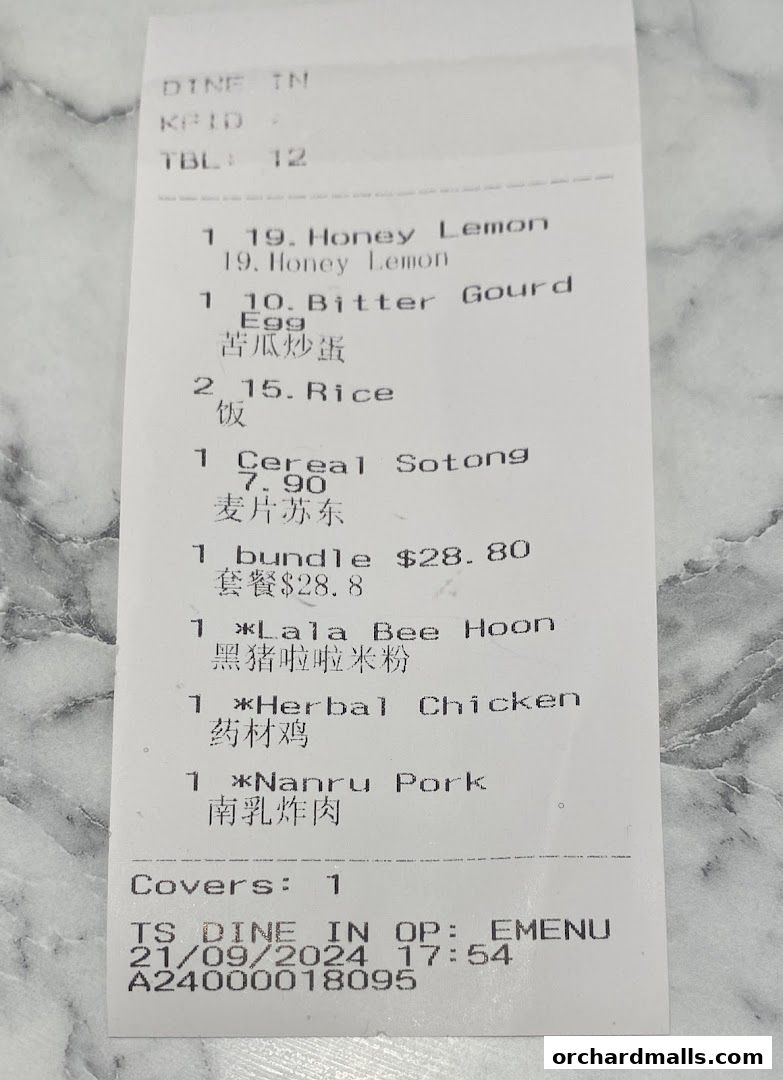 DINE IN
KPID -
TBL: 12
1 19.Honey Lemon
19.Honey Lemon
1 10.Bitter Gourd
Egg
苦瓜炒蛋
2 15.Rice
饭
1 Cereal Sotong
7.90
麦片苏东
1 bundle $28.80
套餐$28.8
1 *Lala Bee Hoon
黑猪啦啦米粉
1 *Herbal Chicken
药材鸡
1 *Nanru Pork
南乳炸肉
Covers: 1
TS DINE IN OP: EMENU
21/09/2024 17:54
A24000018095
orchardmalls.com